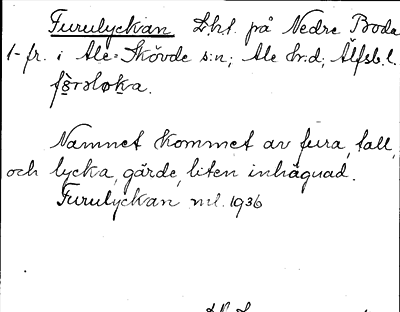 Furulyckan Lht. på Nedre Boda
1-fr. i Ale-Skövde s:n; Ale hr.d; Älfsb. l.
Namnet kommet av fura, tall,
och lycka, gärde, liten inhägnad.
Furulyckan nl. 1936